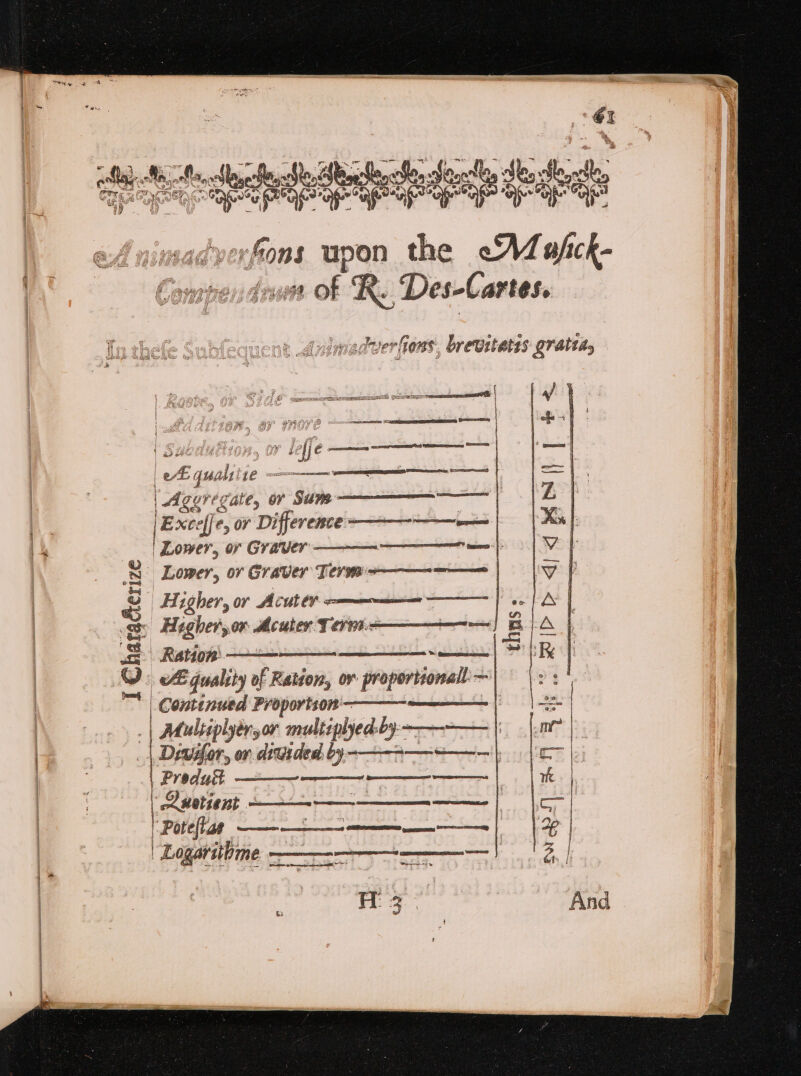 61
Animadversions upon the Musick-
Compendium of R. Des-Cartes.
In these Subsequent Animadversions, brevitatis gratia,
I Characterize
thus:
Roote, or Side √
Addition, or more +
Subduction, or lesse —
Æqualitie =
Aggregate, or Sum Z
Excesse, or Difference X
Lower, or Graver ▽
Lower, or Graver Term ▽̅
Higher, or Acuter △
Higher, or Acuter Term △̲
Ration R
Æquality of Ration, or proportionall ::
Continued Proportion ∺
Multiplyer, or multiplyed by
Divisor, or divided by
Product
Quotient
Potestas
Logarithme
H 3 And